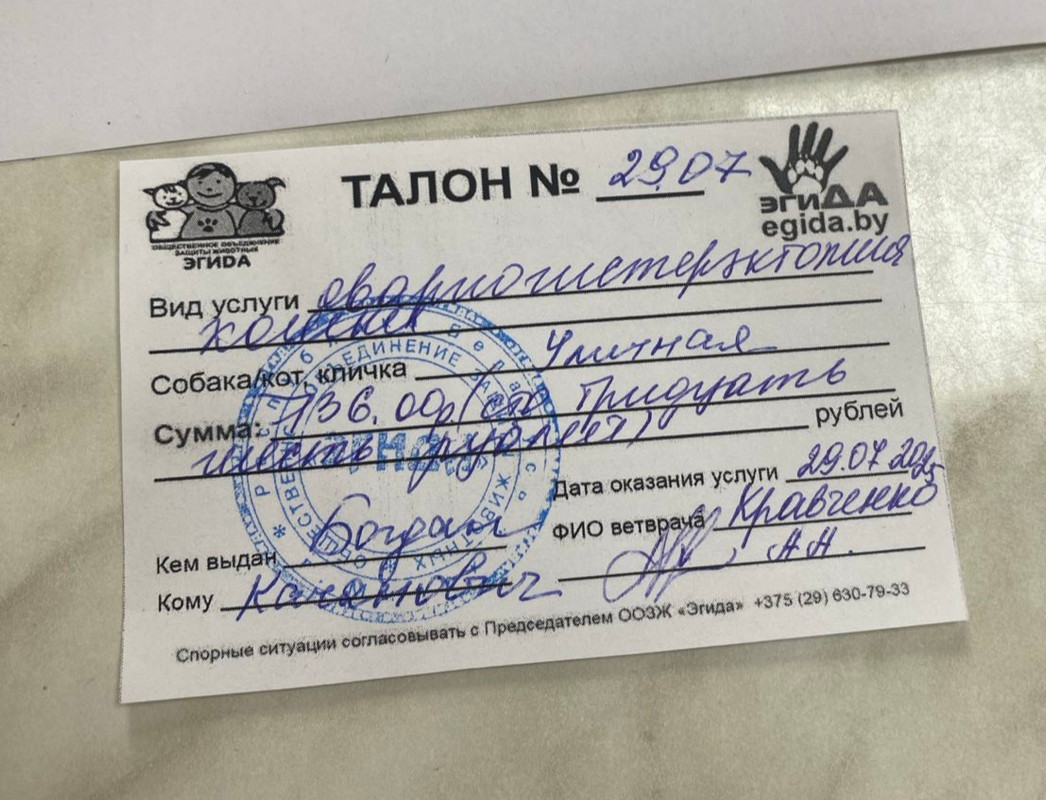 ТАЛОН № 29.07
ОБЩЕСТВЕННОЕ ОБЪЕДИНЕНИЕ
ЗАЩИТЫ ЖИВОТНЫХ
ЭГИДА
эгиДА
egida.by
Вид услуги овариогистерэктомия
кошки
Собака/кот, кличка Уличная
Сумма: 136,00р (сто тридцать
шесть рублей) рублей
Дата оказания услуги 29.07.2025
ФИО ветврача Кравченко
А.А.
Кем выдан Богдан
Кому Каханович
Спорные ситуации согласовывать с Председателем ООЗЖ «Эгида» +375 (29) 630-79-33